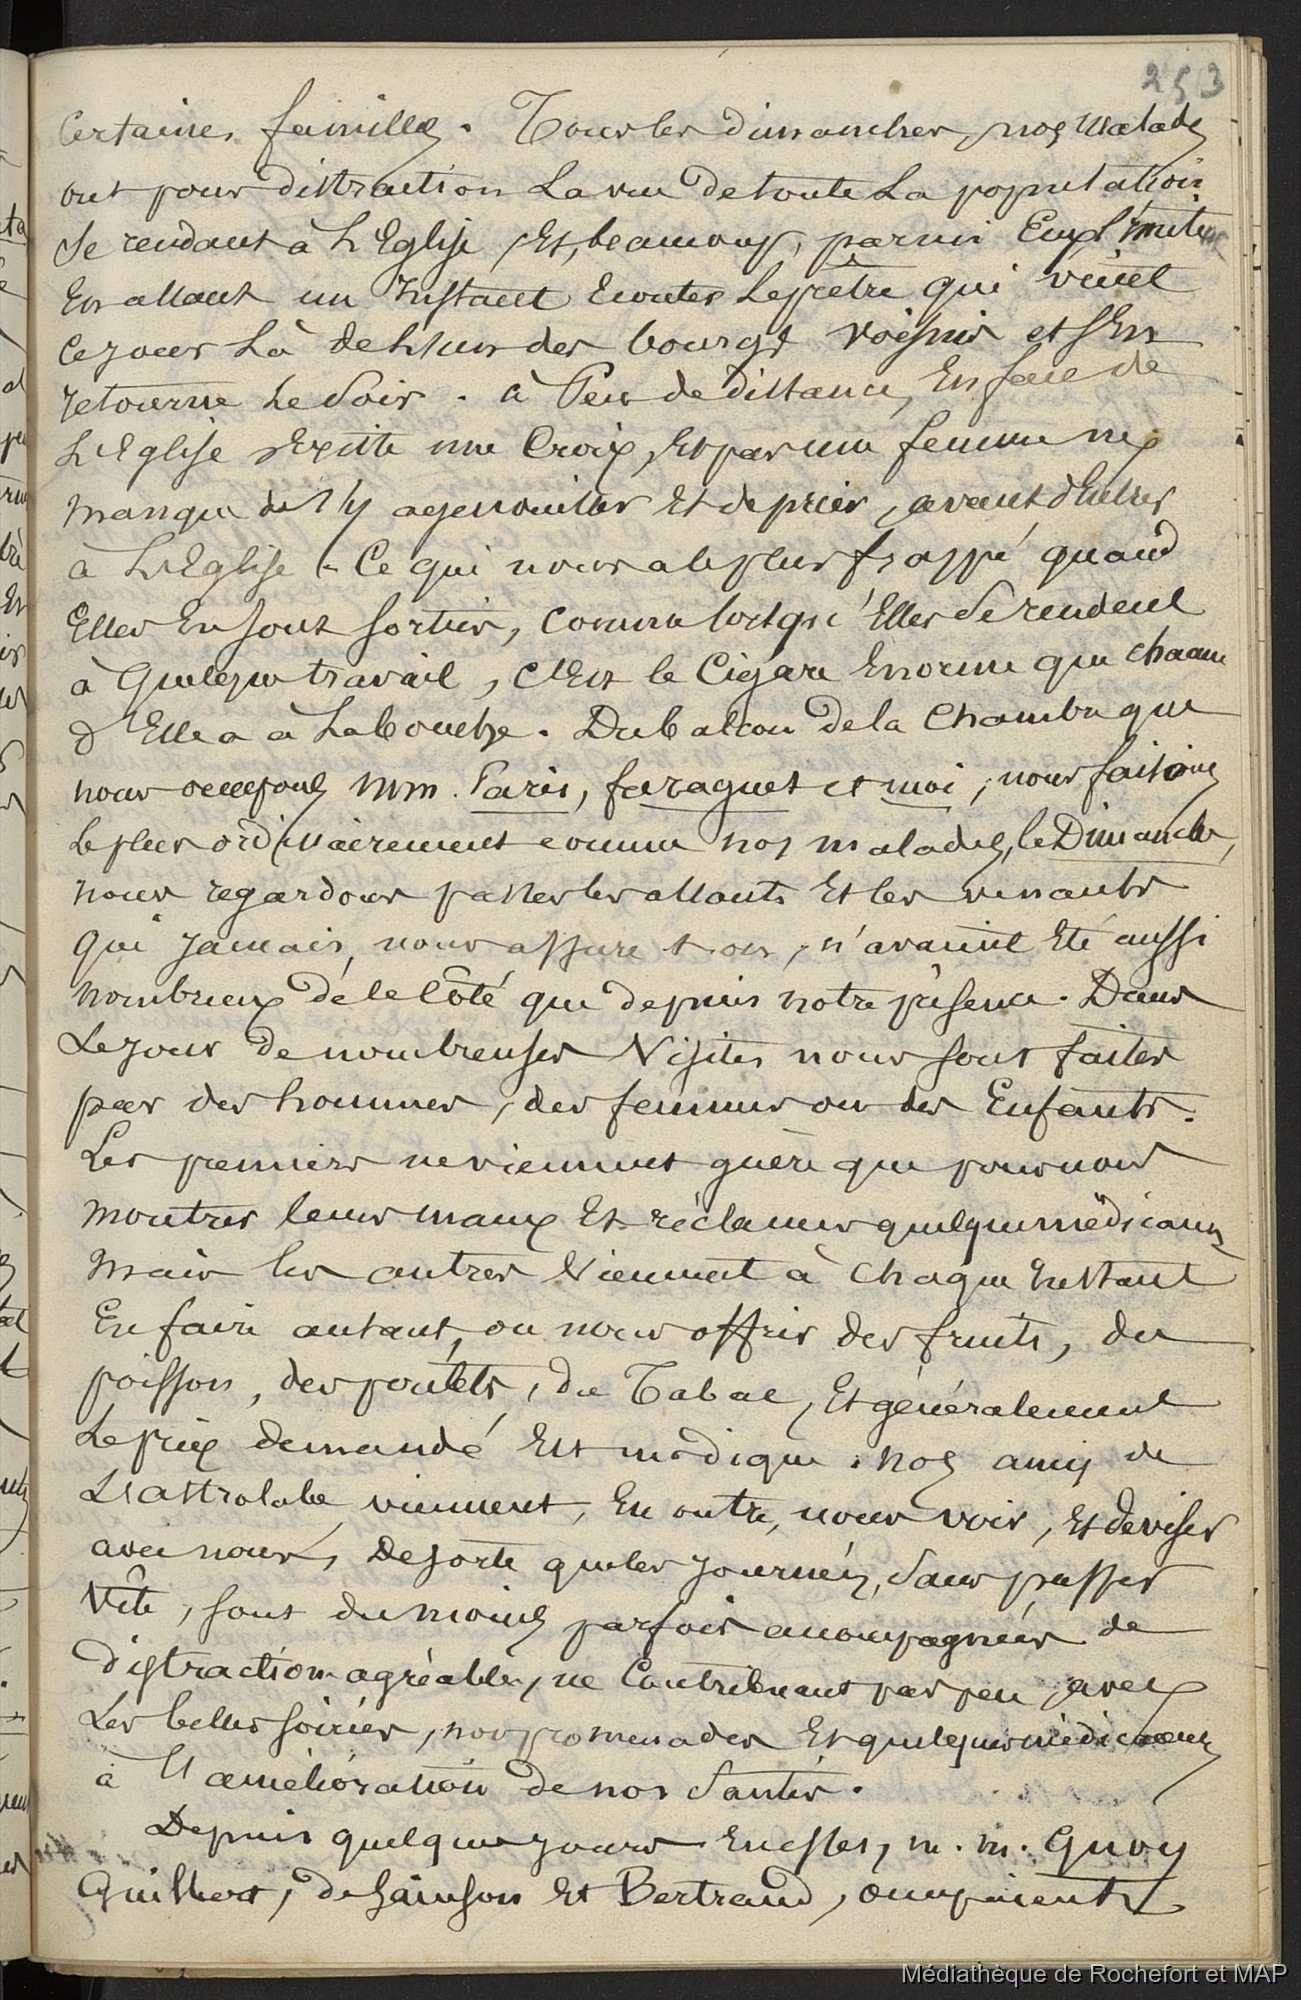 253
Certaines familles. Tous les dimanches, nos Malades
ont pour distraction La vue De toute La population
se rendant à L'Eglise, Et, beaucoup, parmi Eux l'imitent
En allant un Instant Ecouter Le prêtre qui vient
Ce jour Là de L'un des bourgs voisins et s'En
retourne Le Soir. à Peu de distance, En face de
L'Eglise Existe une Croix, Et pas une femme ne
manque de s'y agenouiller Et de prier, avant d'Entrer
à L'Eglise. Ce qui nous a le plus frappé quand
Elles En sont sorties, comme lorsqu'Elles Se rendent
à Quelque travail, c'Est le Cigare Enorme que chacune
d'Elle a à La bouche. Du balcon de la Chambre que
nous occupons MM. Paris, faraguet et moi, nous faisions
le plus ordinairement comme nos malades, le Dimanche,
nous regardons passer les allants Et les venants
qui jamais, nous assure t-on, n'avaient Eté aussi
nombreux de ce Côté que depuis notre présence. Dans
Le jour de nombreuses Visites nous sont faites
par des hommes, des femmes ou des Enfants.
Les premiers ne viennent guère que pour nous
montrer leurs maux Et réclamer quelques médicaux
Mais les autres Viennent à chaque Instant
En faire autant, ou nous offrir des fruits, du
poisson, des poulets, du Tabac, Et généralement
Le prix demandé Est modique. Nos amis de
L'Astrolabe viennent, En outre, nous voir, Et deviser
avec nous, De sorte que les journées, Sans passer
Vite, sont du moins parfois accompagnées de
distraction agréables, ne Contribuant pas peu, avec
Les belles soirées, nos promenades Et quelques médicaux
à L'amélioration de nos Santés.
Depuis quelques jours En effet, M. M. Quoy
Guilbert, de Sainson Et Bertrand, occupaient
Médiathèque de Rochefort et MAP